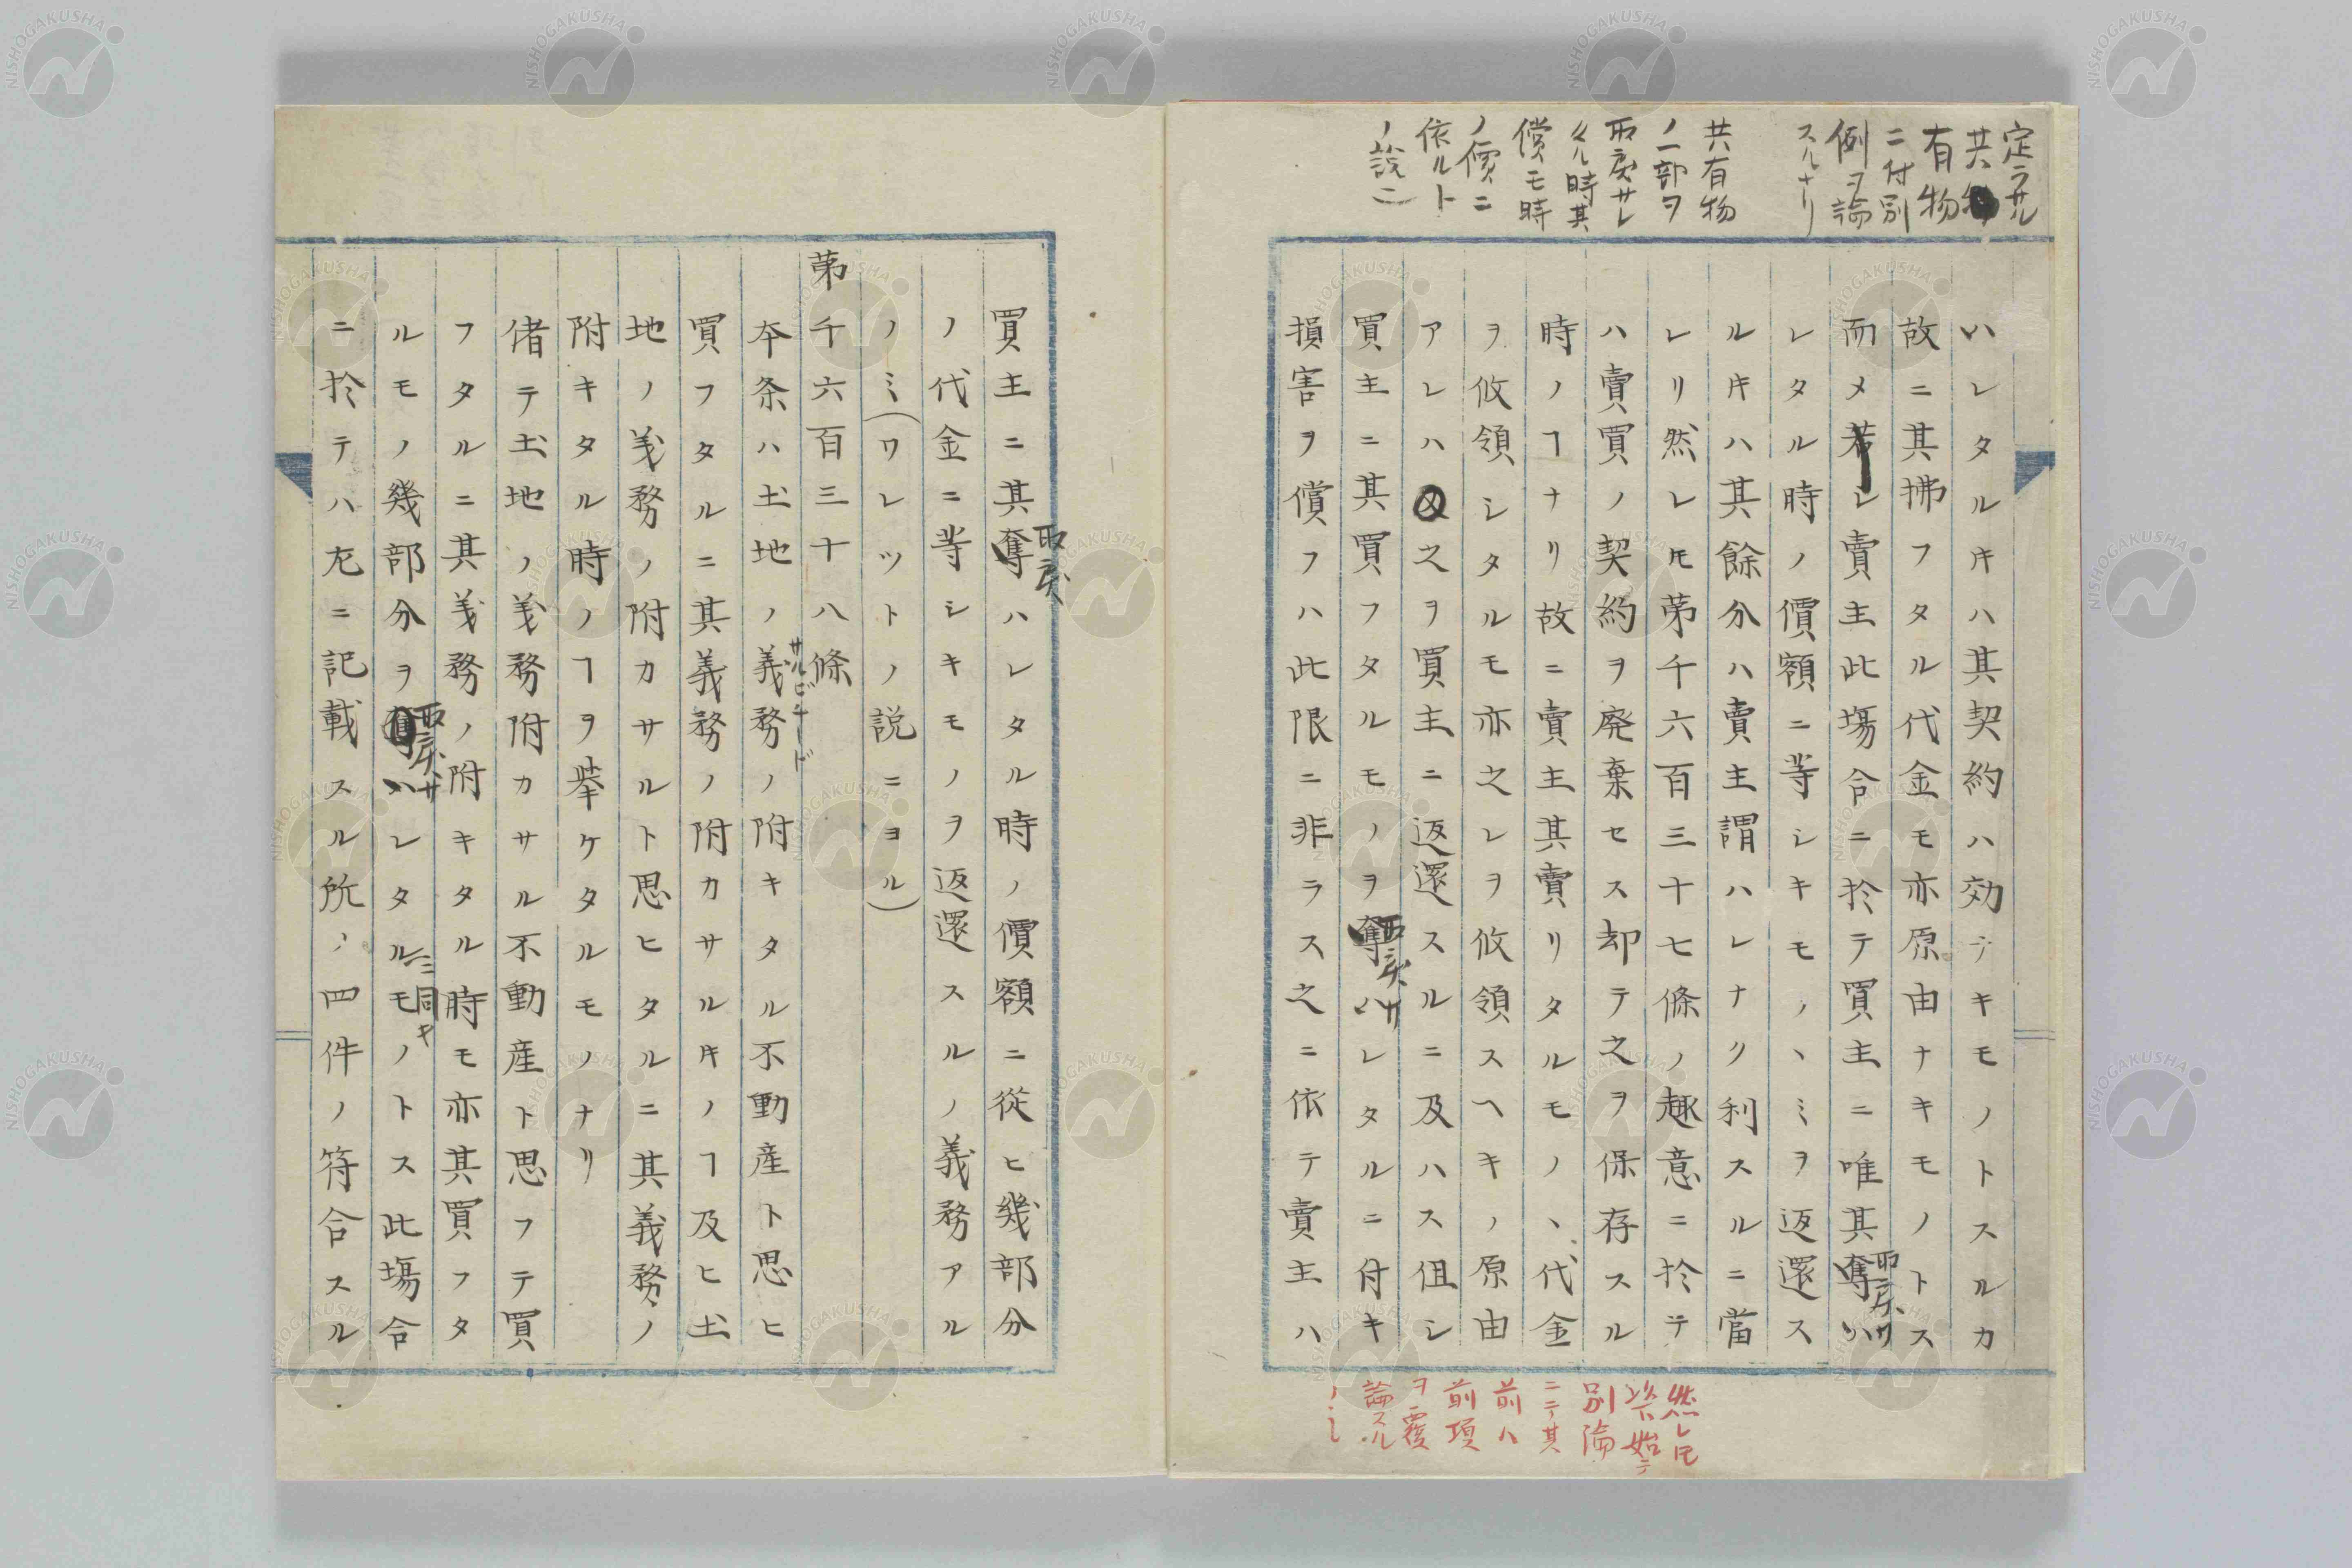 定ラサル
共
有物
ニ付別
例ヲ論
スルナリ
共有物
ノ一部ヲ
取戻サレ
タル時其
償モ時
ノ價ニ
依ルト
ノ説ニ
ハレタル𪜈ハ其契約ハ効テキモノトスルカ
故ニ其拂フタル代金モ亦原由ナキモノトス
而メ若シ賣主此塲合ニ於テ買主ニ唯其奪ハ
取戻サ
レタル時ノ價額ニ等シキモノヽミヲ返還ス
ル𪜈ハ其餘分ハ賣主謂ハレナク利スルニ當
レリ然レ𪜈第千六百三十七條ノ趣意ニ於テ
ハ賣買ノ契約ヲ廃棄セス却テ之ヲ保存スル
時ノヿナリ故ニ賣主其賣リタルモノヽ代金
ヲ收領シタルモ亦之レヲ收領スヘキノ原由
アレハ之ヲ買主ニ返還スルニ及ハス但シ
買主ニ其買フタルモノヲ奪ハレタルニ付キ
取戻サ
損害ヲ償フハ此限ニ非ラス之ニ依テ賣主ハ
然レ𪜈
茲始テ
別論
ニテ其
前ハ
前項
ヲ覆
論スル
ノミ
買主ニ其奪ハレタル時ノ價額ニ從ヒ幾部分
取戻
ノ代金ニ等シキモノヲ返還スルノ義務アル
ノミ(ワレツトノ説ニヨル)
第千六百三十八條
本条ハ土地ノ義務ノ附キタル不動産ト思ヒ
サルビチード
買フタルニ其義務ノ附カサル𪜈ノヿ及ヒ土
地ノ義務ノ附カサルト思ヒタルニ其義務ノ
附キタル時ノヿヲ挙ケタルモノナリ
偖テ土地ノ義務附カサル不動産ト思フテ買
フタルニ其義務ノ附キタル時モ亦其買フタ
ルモノ幾部分ヲ奪ハレタルモノトス此塲合
取戻サ
ニ同キ
ニ於テハ左ニ記載スル所ノ四件ノ符合スル
NISHOGAKUSHA